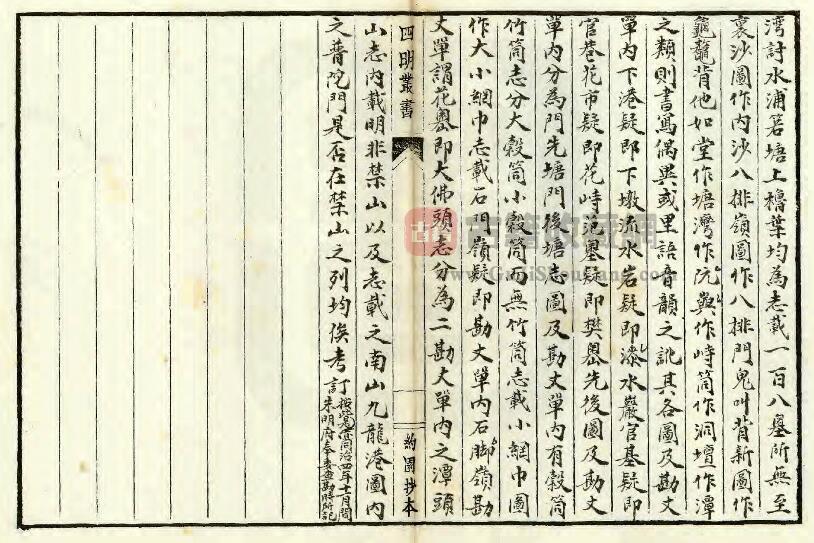 湾討水浦箬塘上櫓葉均為志載一百八墓所無至
裏沙圖作内沙八排嶺圖作八排門鬼叫背新圖作
龜背他如堂作塘灣作阮與作峙筒作洞壇作潭
之類則書寫偶異或里語音韻之訛其各圖及勘丈
單内下港疑即下墩流水岩疑即漆水巖官基疑即
官巷花市疑即花峙范墨疑即樊嶴先後圖及勘丈
單内分為門先塘門後塘志圖及勘丈單内有㲄筒
竹筒志分大㲄筒小㲄筒而無竹筒志載小網巾圖
作大小網巾志載石門嶺疑即勘丈單内石脚嶺勘
丈單謂花嶴即大佛頭志分為二勘丈單内之潭頭
四明叢書
約園抄本
山志内載明非禁山以及志載之南山九龍港圖内
之普陀門是否在禁山之列均俟考
同治四年十一月間
朱明府奉委查勘時所記